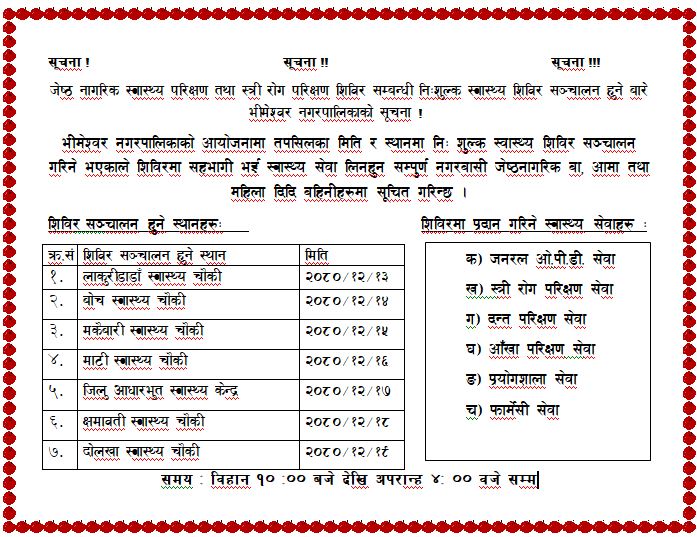 सूचना ! सूचना !! सूचना !!!
जेष्ठ नागरिक स्वास्थ्य परिक्षण तथा स्त्री रोग परिक्षण शिविर सम्बन्धी निःशुल्क स्वास्थ्य शिविर सञ्चालन हुने बारे
भीमेश्वर नगरपालिकाको सूचना !
भीमेश्वर नगरपालिकाको आयोजनामा तपसिलका मिति र स्थानमा निः शुल्क स्वास्थ्य शिविर सञ्चालन
गरिने भएकाले शिविरमा सहभागी भई स्वास्थ्य सेवा लिनहुन सम्पुर्ण नगरबासी जेष्ठनागरिक बा, आमा तथा
महिला दिदि बहिनीहरूमा सूचित गरिन्छ ।
शिविर सञ्चालन हुने स्थानहरुः
क्र.सं शिविर सञ्चालन हुने स्थान मिति
१. लाकुरीडाडाँ स्वास्थ्य चौकी २०८०/१२/१३
२. बोच स्वास्थ्य चौकी २०८०/१२/१४
३. मकैबारी स्वास्थ्य चौकी २०८०/१२/१५
४. माटी स्वास्थ्य चौकी २०८०/१२/१६
५. जिलु आधारभुत स्वास्थ्य केन्द्र २०८०/१२/१७
६. क्षमावती स्वास्थ्य चौकी २०८०/१२/१८
७. दोलखा स्वास्थ्य चौकी २०८०/१२/१९
शिविरमा प्रदान गरिने स्वास्थ्य सेवाहरु :
क) जनरल ओ.पी.डी. सेवा
ख) स्त्री रोग परिक्षण सेवा
ग) दन्त परिक्षण सेवा
घ) आँखा परिक्षण सेवा
ङ) प्रयोगशाला सेवा
च) फार्मेसी सेवा
समय : विहान १० :०० बजे देखि अपरान्ह ४: ०० वजे सम्म